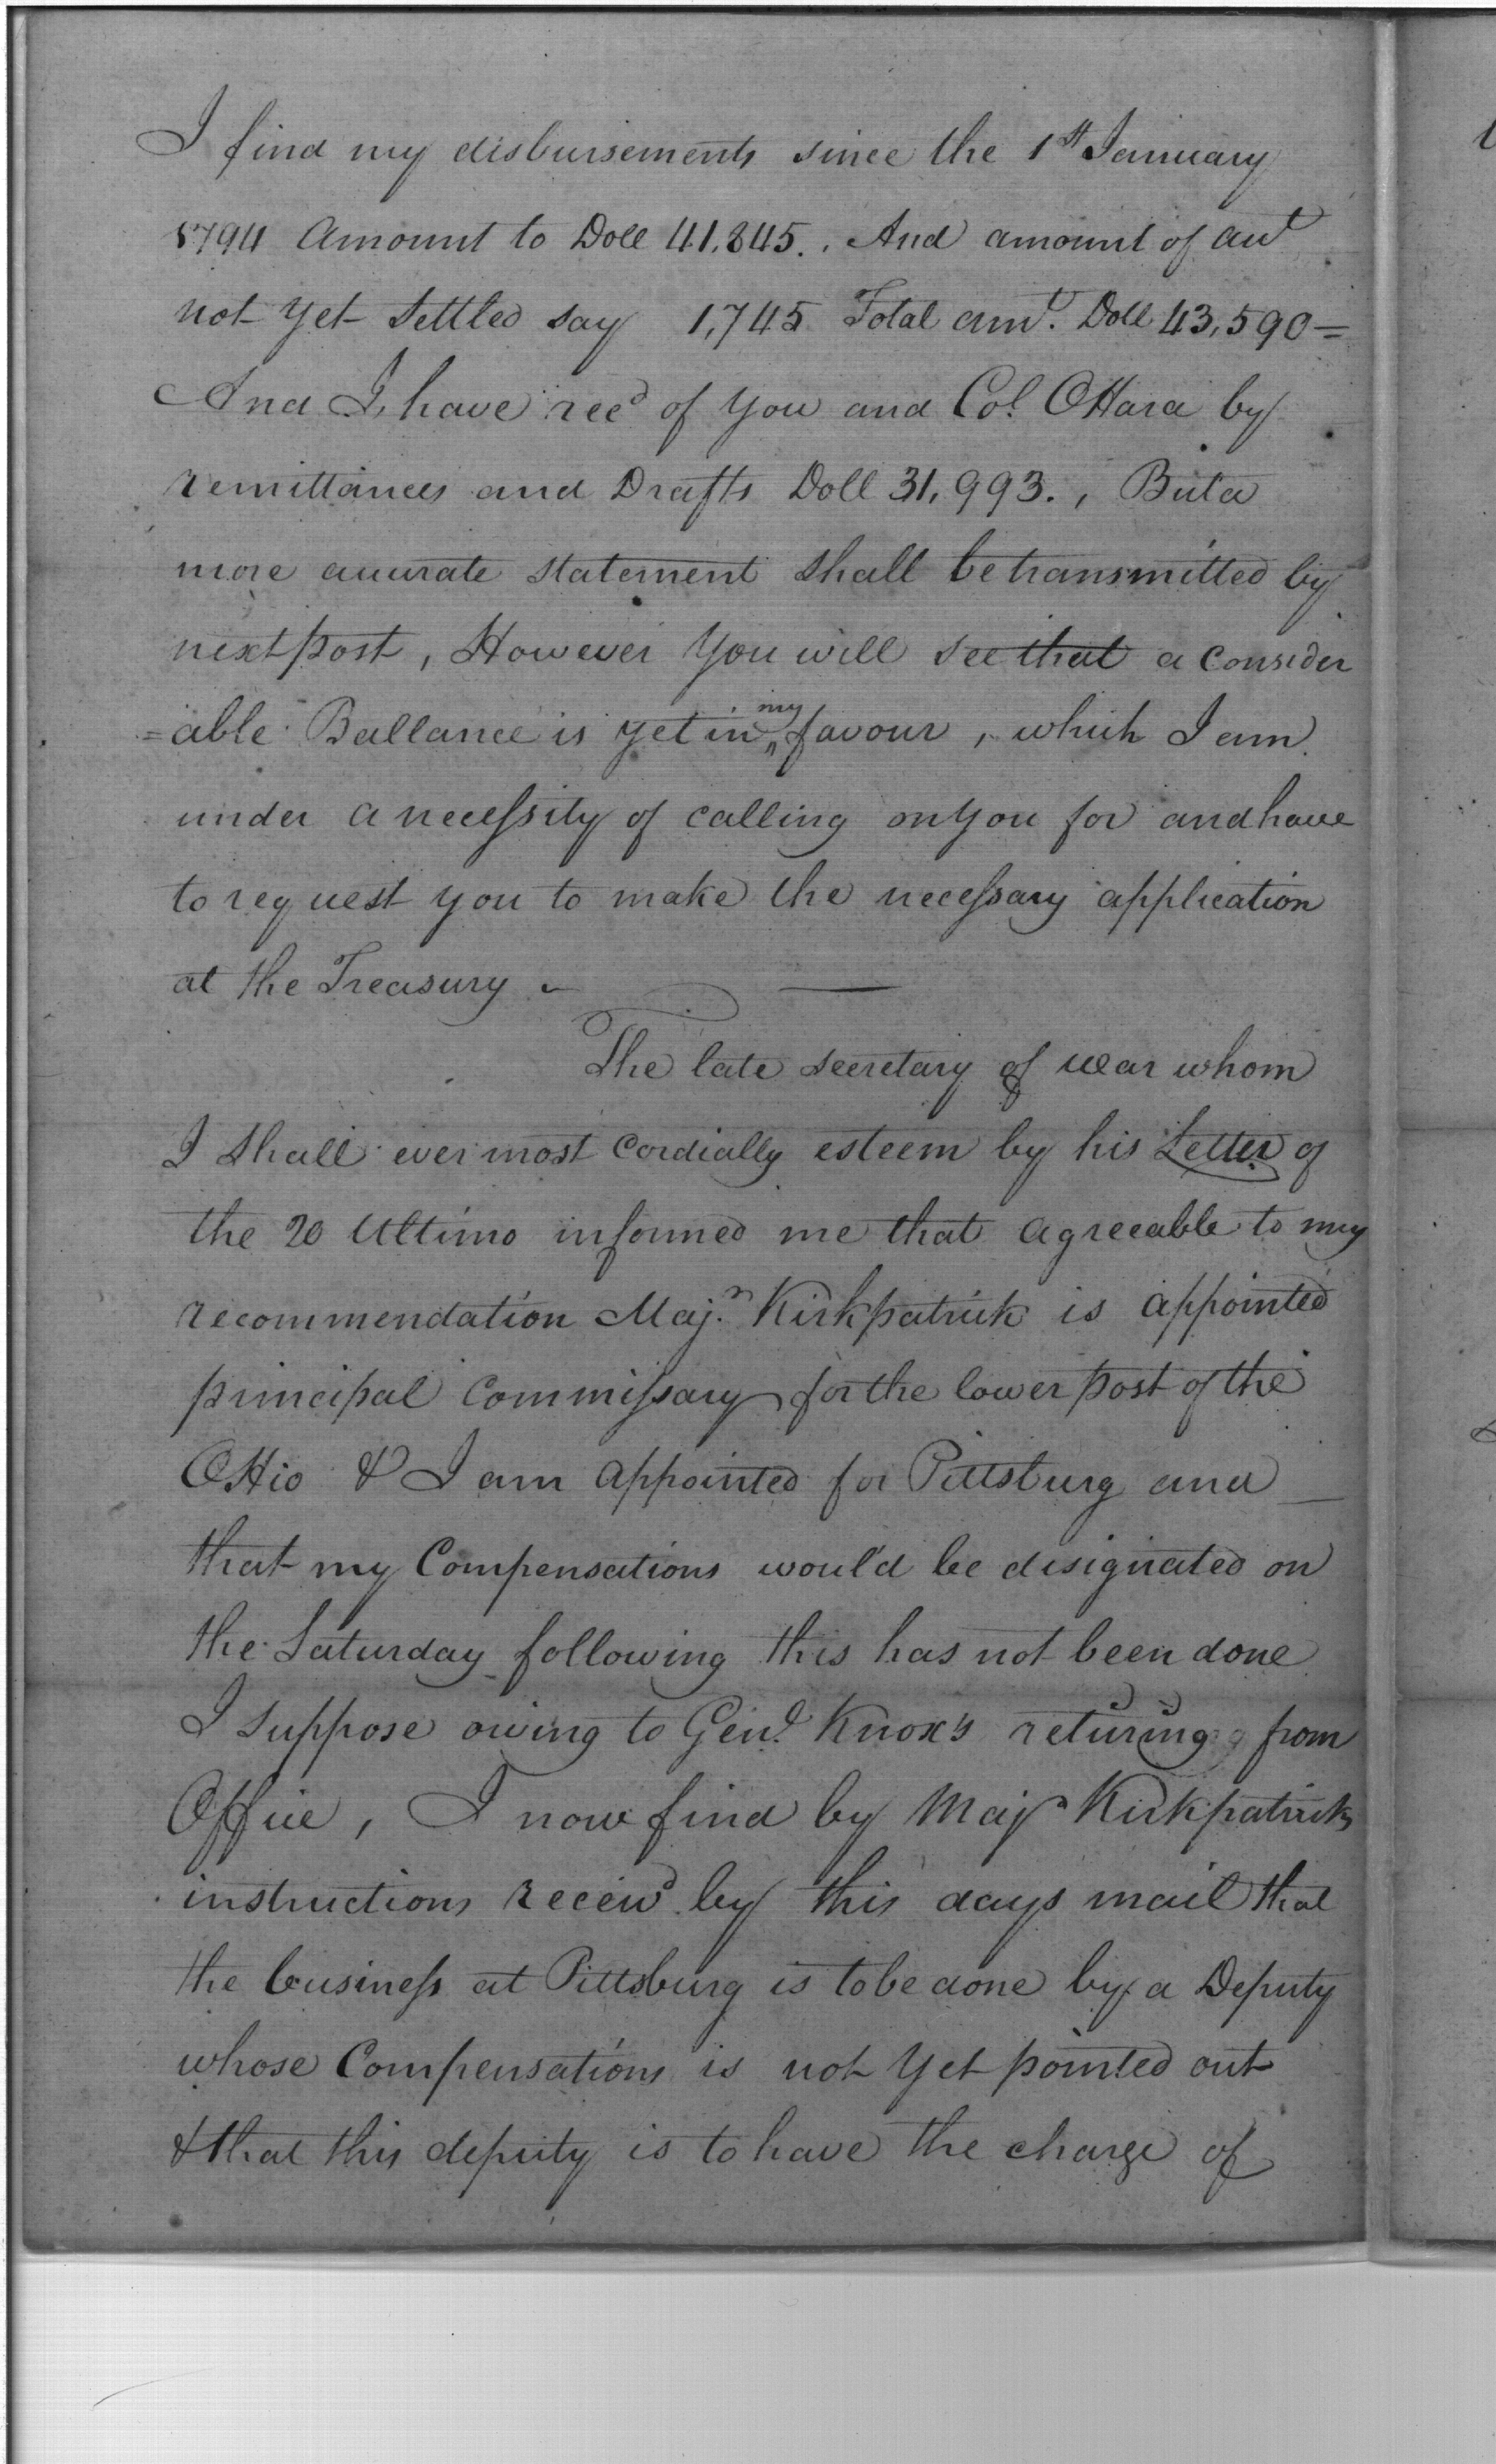 I find my disbursements since the 1st January
1794 Amount to Doll 41,845.. And amount of acct
not yet Settled say 1,745 Total amt. Doll 43,590=
And I, have recd of You and Col. OHara by
remittances and Drafts Doll 31,993., But a
more accurate statement shall be transmitted by
next post, However You will see that a consider
=able Ballance is yet in my favour, which I am
under a necessity of calling on You for and have
to request you to make the necessary application
at the Treasury. –
The late secretary of war whom
I shall ever most Cordially esteem by his Letter of
the 20 Ultimo informed me that agreeable to my
recommendation Majr. Kirkpatrick is appointed
principal Commissary for the lower post of the
OHio & I am appointed for Pittsburg and
that my Compensations would be designated on
the Saturday following this has not been done
I suppose owing to Genl. Knox's retiring from
Office, I now find by Majr Kirkpatricks
instructions receivd by this days mail that
the business at Pittsburg is to be done by a Deputy
whose Compensations is not Yet pointed out
& that this deputy is to have the charge of